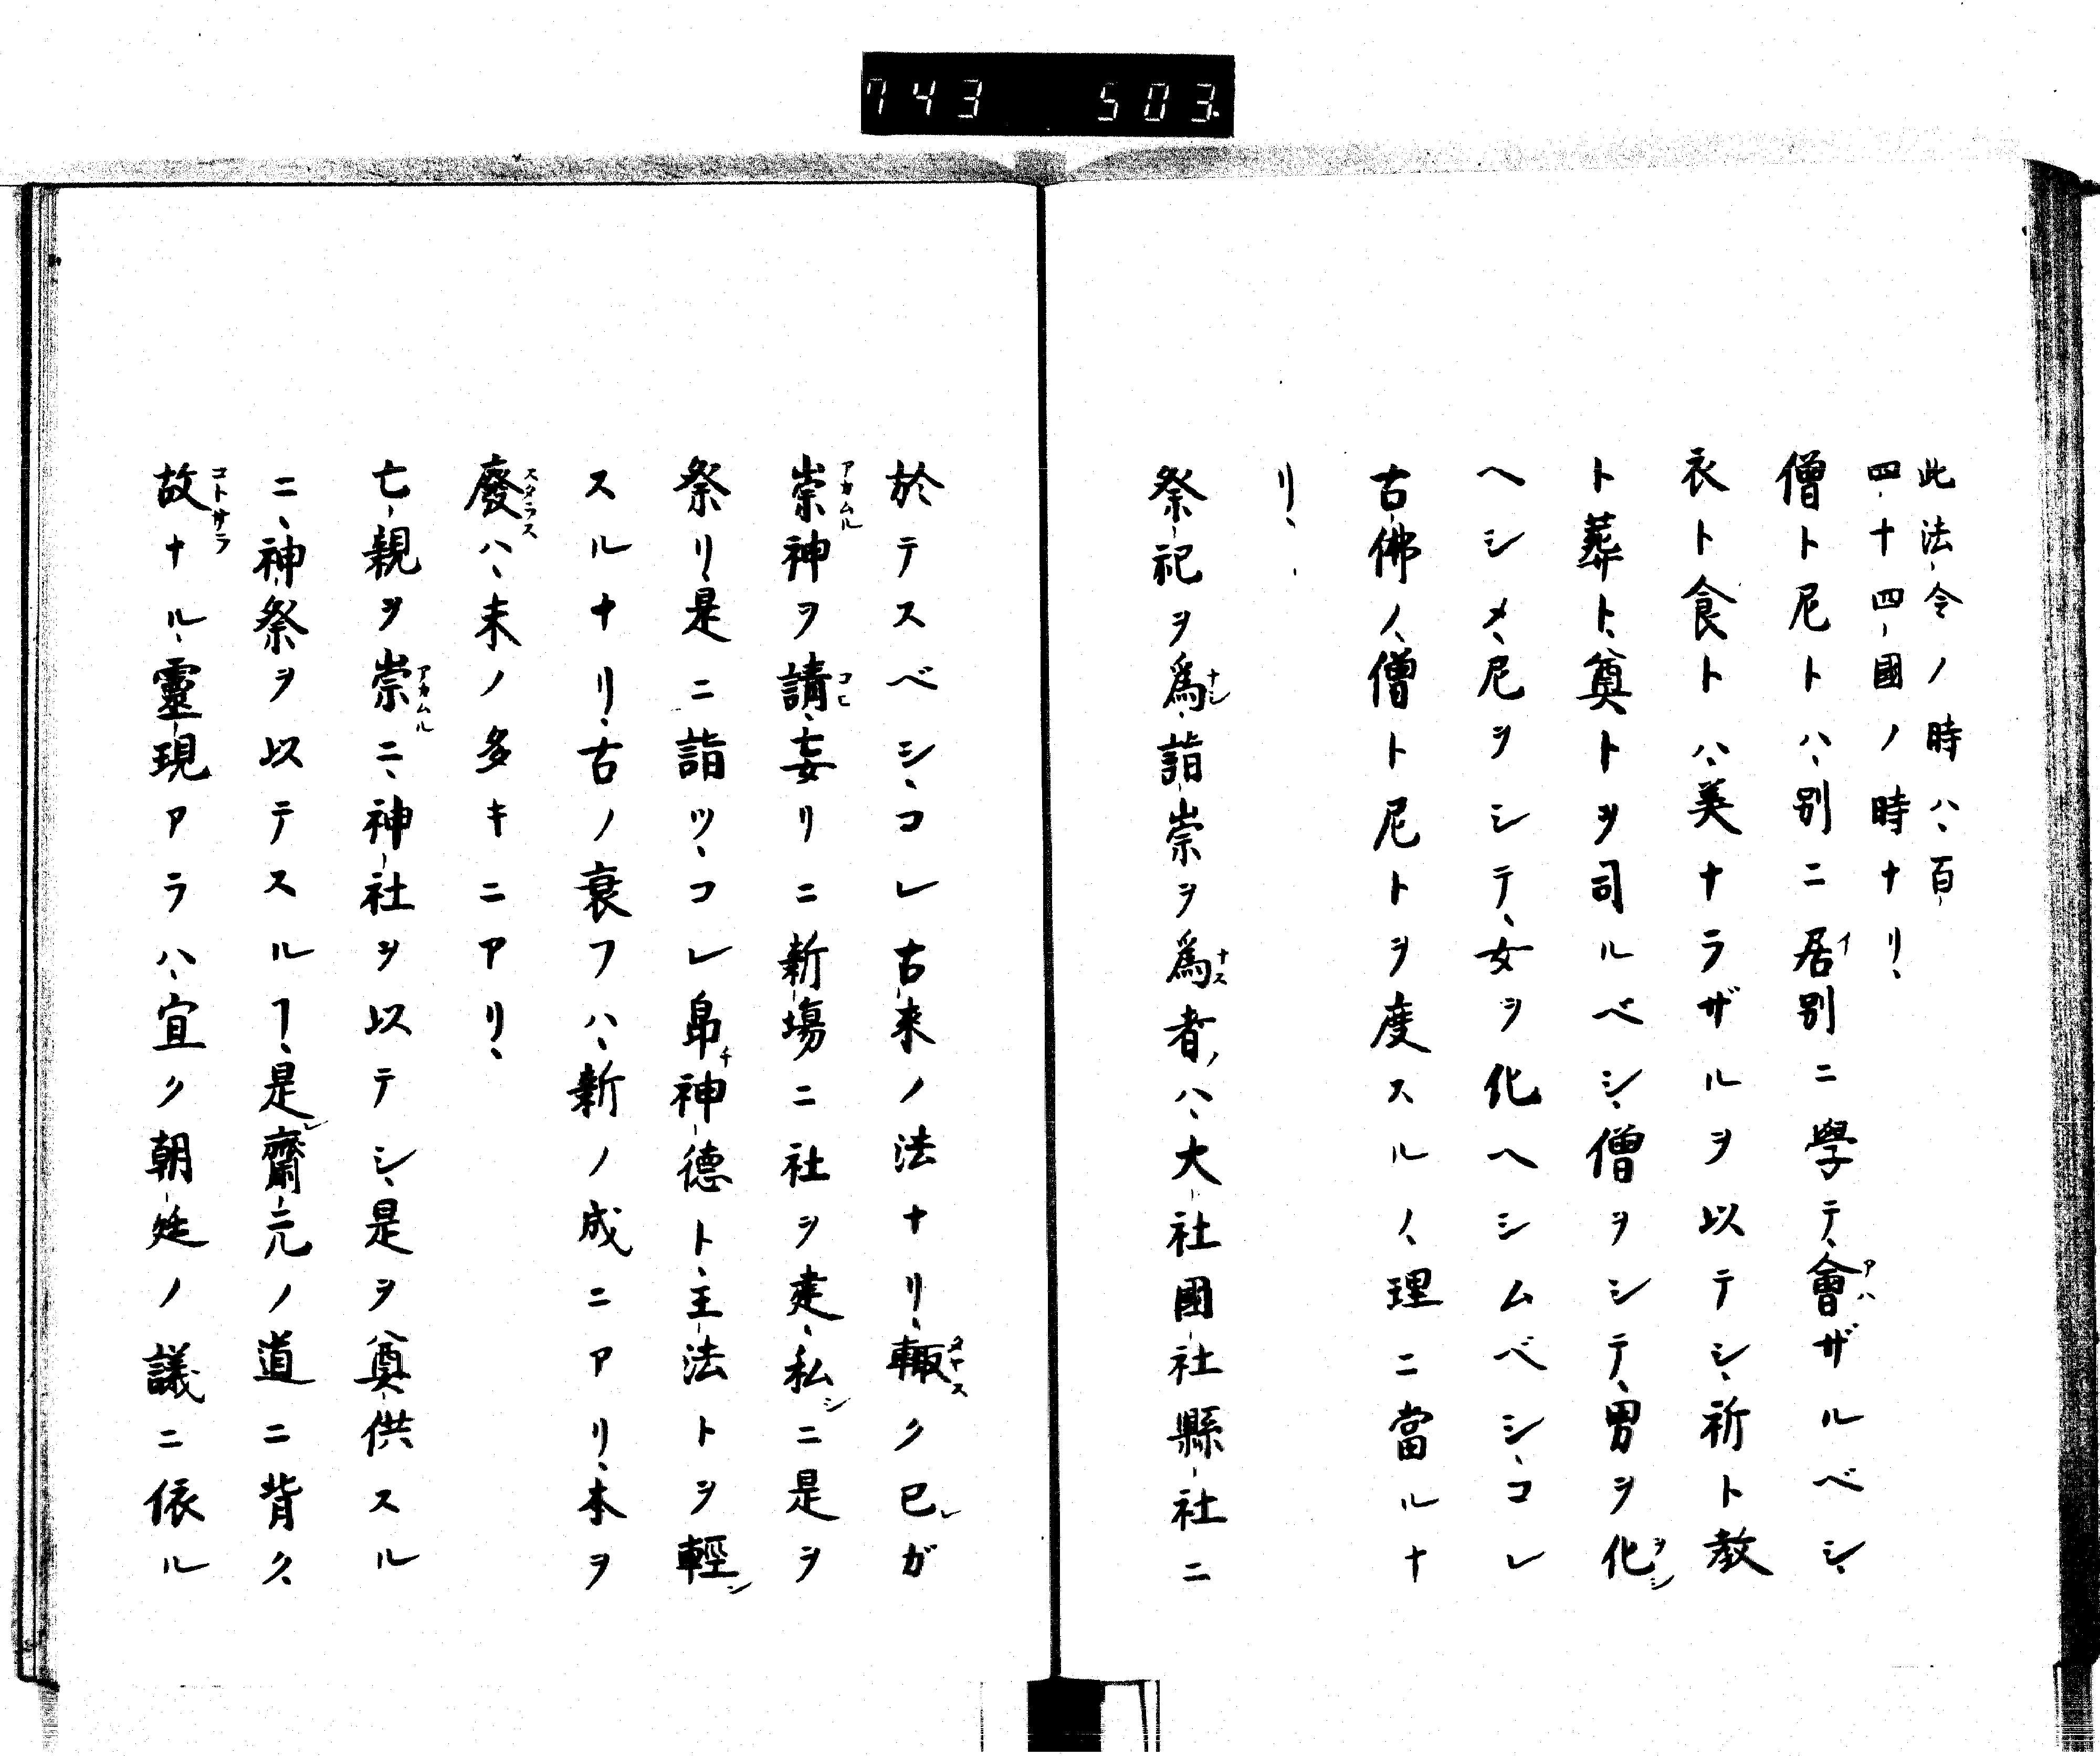 743 503
此法令ノ時ハ、百
四十四國ノ時ナリ、
僧ト尼トハ、別ニ居別ニ學テ、會ザルベシ、
衣ト食トハ、美ナラザルヲ以テシ、祈ト教
ト葬ト、奠トヲ司ルベシ、僧ヲシテ、男ヲ化
ヘシメ、尼ヲシテ、女ヲ化ヘシムベシ、コレ
古佛ノ、僧ト尼トヲ度スルノ、理ニ當ルナ
リ、
祭祀ヲ爲、詣崇ヲ爲者ノハ、大社國社縣社ニ
於テスベシ、コレ古来ノ法ナリ、輙ク已レガ
崇神ヲ請、妄リニ新塲ニ社ヲ建、私シニ是ヲ
祭リ、是ニ詣ツ、コレ帛チ神德ト、主法トヲ輕シ
スルナリ、古ノ衰フハ、新ノ成ニアリ、本ヲ
廢ハ、末ノ多キニアリ、
亡親ヲ崇ニ、神社ヲ以テシ、是ヲ奠供スル
ニ、神祭ヲ以テスルヿ、是レ齋元ノ道ニ背ク、
故ナル、靈現アラハ、宜ク朝廷ノ議ニ依ル